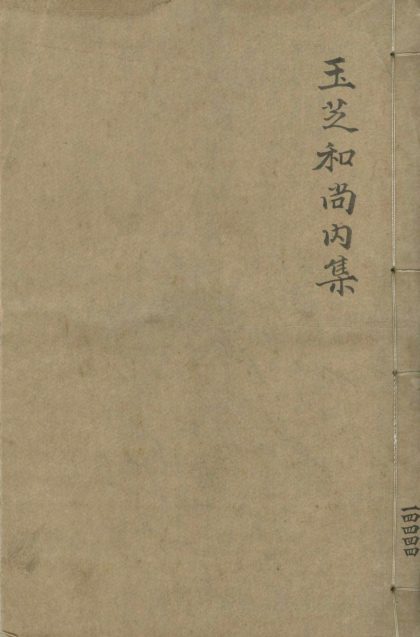 玉芝和尚内集
一四四四四